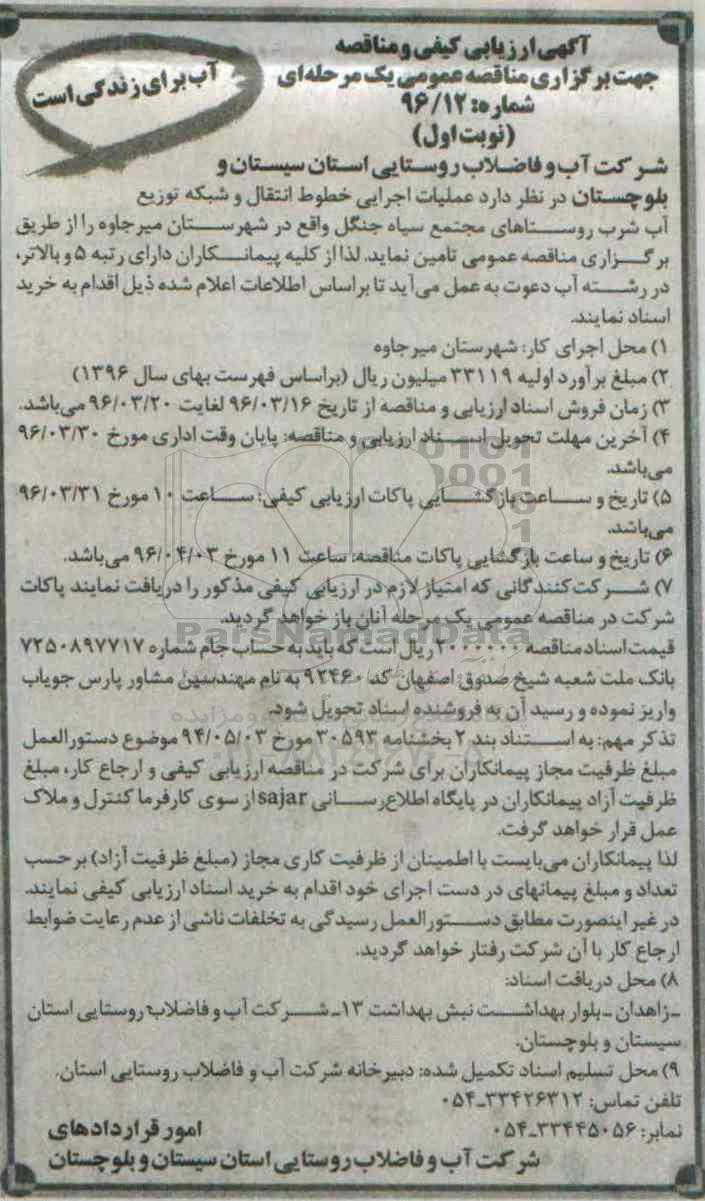 آگهی ارزیابی کیفی و مناقصه
جهت برگزاری مناقصه عمومی یک مرحله‌ای
شماره: ۹۶/۱۲
(نوبت اول)
آب برای زندگی است
شرکت آب و فاضلاب روستایی استان سیستان و
بلوچستان در نظر دارد عملیات اجرایی خطوط انتقال و شبکه توزیع
آب شرب روستاهای مجتمع سیاه جنگل واقع در شهرستان میرجاوه را از طریق
برگزاری مناقصه عمومی تامین نماید. لذا از کلیه پیمانکاران دارای رتبه ۵ و بالاتر،
در رشته آب دعوت به عمل می‌آید تا براساس اطلاعات اعلام شده ذیل اقدام به خرید
اسناد نمایند.
۱) محل اجرای کار: شهرستان میرجاوه
۲) مبلغ برآورد اولیه ۳۳۱۱۹ میلیون ریال (براساس فهرست بهای سال ۱۳۹۶)
۳) زمان فروش اسناد ارزیابی و مناقصه از تاریخ ۹۶/۰۳/۱۶ لغایت ۹۶/۰۳/۲۰ می‌باشد.
۴) آخرین مهلت تحویل اسناد ارزیابی و مناقصه: پایان وقت اداری مورخ ۹۶/۰۳/۳۰
می‌باشد.
۵) تاریخ و ساعت بازگشایی پاکات ارزیابی کیفی: ساعت ۱۰ مورخ ۹۶/۰۳/۳۱
می‌باشد.
۶) تاریخ و ساعت بازگشایی پاکات مناقصه: ساعت ۱۱ مورخ ۹۶/۰۴/۰۳ می‌باشد.
۷) شرکت‌کنندگانی که امتیاز لازم در ارزیابی کیفی مذکور را دریافت نمایند پاکات
شرکت در مناقصه عمومی یک مرحله آنان باز خواهد گردید.
ParsNamadData
قیمت اسناد مناقصه ۲۰۰۰۰۰۰ ریال است که باید به حساب جام شماره ۷۲۵۰۸۹۷۷۱۷
بانک ملت شعبه شیخ صدوق اصفهان کد ۹۲۴۶۰ به نام مهندسین مشاور پارس جویاب
واریز نموده و رسید آن به فروشنده اسناد تحویل شود.
تذکر مهم: به استناد بند ۲ بخشنامه ۳۰۵۹۳ مورخ ۹۴/۰۵/۰۳ موضوع دستورالعمل
مبلغ ظرفیت مجاز پیمانکاران برای شرکت در مناقصه ارزیابی کیفی و ارجاع کار، مبلغ
ظرفیت آزاد پیمانکاران در پایگاه اطلاع‌رسانی sajar از سوی کارفرما کنترل و ملاک
عمل قرار خواهد گرفت.
لذا پیمانکاران می‌بایست با اطمینان از ظرفیت کاری مجاز (مبلغ ظرفیت آزاد) برحسب
تعداد و مبلغ پیمانهای در دست اجرای خود اقدام به خرید اسناد ارزیابی کیفی نمایند.
در غیر اینصورت مطابق دستورالعمل رسیدگی به تخلفات ناشی از عدم رعایت ضوابط
ارجاع کار با آن شرکت رفتار خواهد گردید.
۸) محل دریافت اسناد:
-زاهدان -بلوار بهداشت نبش بهداشت ۱۳- شرکت آب و فاضلاب روستایی استان
سیستان و بلوچستان.
۹) محل تسلیم اسناد تکمیل شده: دبیرخانه شرکت آب و فاضلاب روستایی استان.
تلفن تماس: ۳۳۴۲۶۳۱۲-۰۵۴
نمابر: ۳۳۴۴۵۰۵۶-۰۵۴
امور قراردادهای
شرکت آب و فاضلاب روستایی استان سیستان و بلوچستان